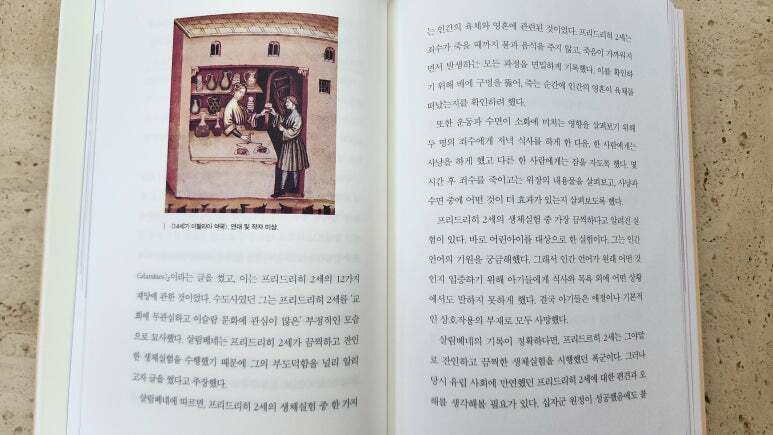 〈14세기 이탈리아 약국〉, 연대 및 작자 미상.
Calamities)』이라는 글을 썼고, 이는 프리드리히 2세의 12가지
재앙에 관한 것이었다. 수도사였던 그는 프리드리히 2세를 '교
회에 무관심하고 이슬람 문화에 관심이 많은' 부정적인 모습
으로 묘사했다. 살림베네는 프리드리히 2세가 끔찍하고 잔인
한 생체실험을 수행했기 때문에 그의 부도덕함을 널리 알리
고자 글을 썼다고 주장했다.
살림베네에 따르면, 프리드리히 2세의 생체실험 중 한 가지
는 인간의 육체와 영혼에 관련된 것이었다. 프리드리히 2세는
죄수가 죽을 때까지 물과 음식을 주지 않고, 죽음이 가까워지
면서 발생하는 모든 과정을 면밀하게 기록했다. 이를 확인하
기 위해 배에 구멍을 뚫어, 죽는 순간에 인간의 영혼이 육체를
떠났는지를 확인하려 했다.
또한 운동과 수면이 소화에 미치는 영향을 살펴보기 위해
두 명의 죄수에게 저녁 식사를 하게 한 다음, 한 사람에게는
사냥을 하게 했고 다른 한 사람에게는 잠을 자도록 했다. 몇
시간 후 죄수를 죽이고는 위장의 내용물을 살펴보고, 사냥과
수면 중에 어떤 것이 더 효과가 있는지 살펴보도록 했다.
프리드리히 2세의 생체실험 중 가장 끔찍하다고 알려진 실
험이 있다. 바로 어린아이를 대상으로 한 실험이다. 그는 인간
언어의 기원을 궁금해했다. 그래서 인간 언어가 원래 어떤 것
인지 입증하기 위해 아기들에게 식사와 목욕 외에 어떤 상황
에서도 말하지 못하게 했다. 결국 아기들은 애정이나 기본적
인 상호작용의 부재로 모두 사망했다.
살림베네의 기록이 정확하다면, 프리드리히 2세는 그야말
로 잔인하고 끔찍한 생체실험을 시행했던 폭군이다. 그러나
당시 유럽 사회에 만연했던 프리드리히 2세에 대한 편견과 오
해를 생각해볼 필요가 있다. 십자군 원정이 성공했음에도 불